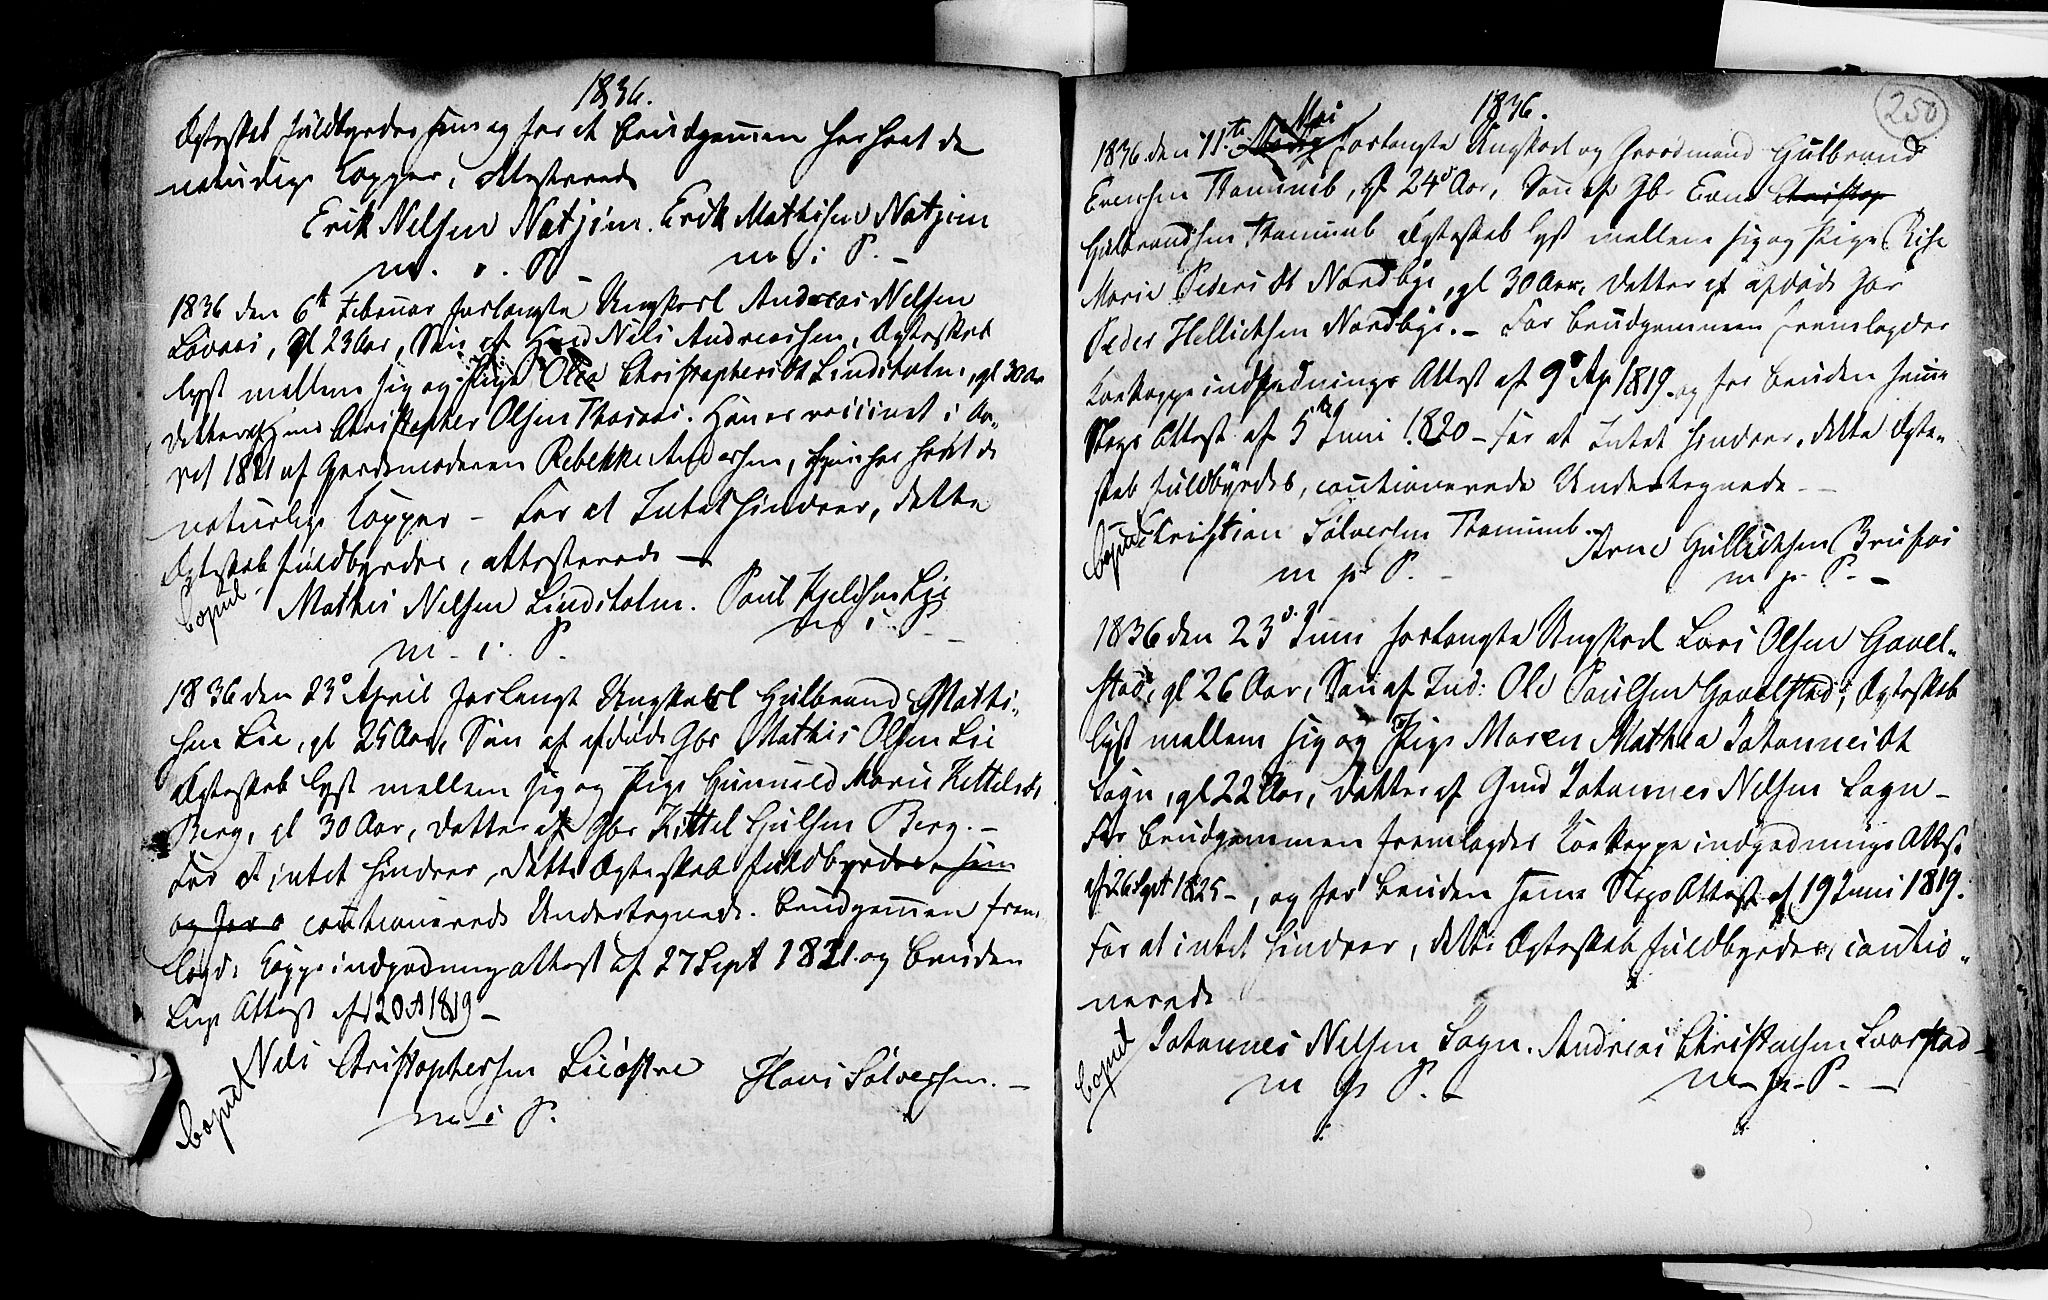 1836.
Ægteskab fuldbyrdes, hun og for at Brudgommen har havt de
naturlige Kopper, attesterede
Erik Nelsen Natjim. Erik Mathisen Natjim
m. i. P. m i P.
1836 den 6te Februar forlangte Ungkarl Andreas Nelsen
Lovaas, gl 23 Aar, Søn af Hmd Nils Andreassen, Ægteskab
lyst mellem sig og Pige Olea Christophersdt Lindsholm, gl 30 Aar
Datter af Hmd Christopher Olsen Thoraas. Han er vaccinert i Aa-
ret 1821 af Gjordemoderen Rebekke Andersen, hun har havt de
naturlige Kopper – For at Intet hindrer, dette
Ægteskab fuldbyrdes, attesterede –
Copul. Mathis Nelsen Lindsholm. Poul Kjeldsen Lie
m. i. P. m i P.
1836 den 23de April forlangt Ungkarl Gulbrand Mathi-
sen Lie, gl 25 Aar, Søn af afdøde Gbr Mathis Olsen Lie
Ægteskab lyst mellem sig og Pige Gunnild Marie Kittelsdt
Berg, gl 30 Aar, Datter af Gbr Kittel Hjulsen Berg. –
For at intet hindrer, dette Ægteskab fuldbyrdes, hun
og for a cautionerede Undertegnede. Brudgommen frem
lagde Koppeindpodningsattest af 27 Sept 1821. og Bruden
Lige Attest af 20 1819 –
Copul Nils Christophersen Lieøstre Hans Sølversen. –
m i P.
250
1836.
1836 den 11te Mai forlangte Ungkarl og Gaardmand Gulbrand
Evensen Tranumb, gl 24 Aar, Søn af Gbr Even Christop
Gulbrandsen Tranumb Ægteskab lyst mellem sig og Pige Rise
Marie Pedersdt Nordbye, gl 30 Aar, Datter af afdøde Gbr
Peder Hellicksen Nordbye. – For Brudgommen fremlagdes
Koekoppeindpodnings Attest af 9de Ap 1819. og for Bruden samme
Slags Attest af 5te Juni 1820 – For at Intet hindrer, dette Ægte-
skab fuldbyrdes, cautionerede Undertegnede –
Copul Cristian Sølversen Tranumb. Arne Gullicksen Brufos
m p. P. – m p. P. –
1836 den 23de Juni forlangte Ungkarl Lars Olsen Gavel-
stad, gl 26 Aar, Søn af Ind: Ole Poulsen Gavelstad, Ægteskab
lyst mellem sig og Pige Maren Mathea Johannesdt
Sogn, gl 22 Aar, Datter af Gmd Johannes Nelsen Sogn –
For Brudgommen fremlagdes Koekoppeindpodnings Attest
af 26 Sept 1825 –, og for Bruden samme Slags Attest af 19 Juni 1819.
For at intet hindrer, dette Ægteskab fuldbyrdes, cautio-
nerede
Copul Johannes Nelsen Sogn. Andreas Christensen Laastad –
m p P. – m p. P. –